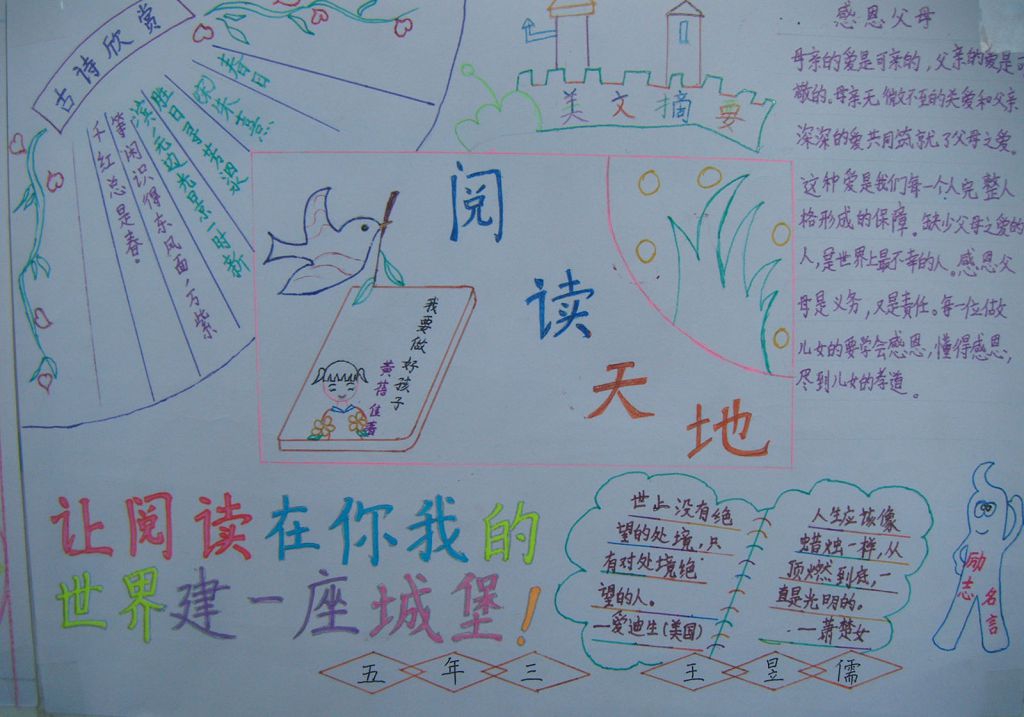 古诗欣赏
春日
宋 朱熹
胜日寻芳泗水
滨,无边光景一时新
等闲识得东风面,万紫
千红总是春。
美文摘要
感恩父母
母亲的爱是可亲的,父亲的爱是可
敬的。母亲无微不至的关爱和父亲
深深的爱共同筑就了父母之爱。
这种爱是我们每一个人完整人
格形成的保障。缺少父母之爱的
人,是世界上最不幸的人。感恩父
母是义务,又是责任。每一位做
儿女的要学会感恩,懂得感恩,
尽到儿女的孝道。
阅读天地
我要做好孩子
黄蓓佳著
让阅读在你我的
世界建一座城堡!
世上没有绝
望的处境,只
有对处境绝
望的人。
—爱迪生(美国)
人生应该像
蜡烛一样,从
顶燃到底,一
直是光明的。
—萧楚女
励志
名言
五年三
王昱儒